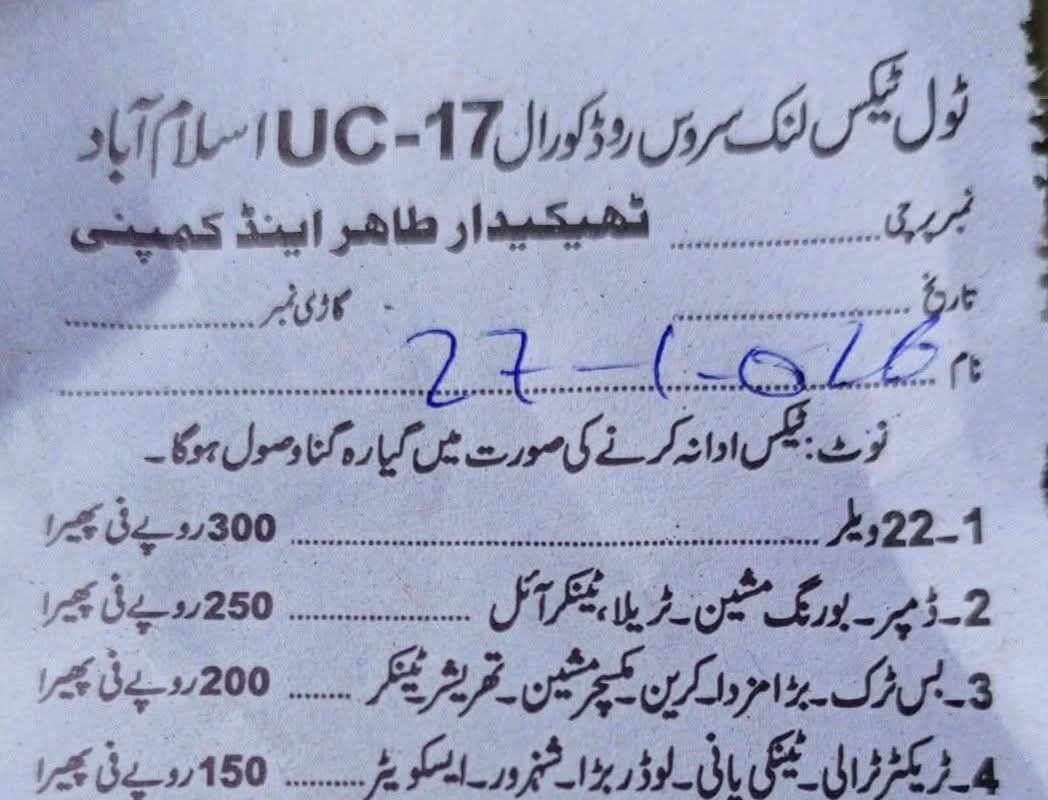 ٹول ٹیکس لنک سروس روڈ کورال UC-17 اسلام آباد
نمبر پرچی ........................ ٹھیکیدار طاہر اینڈ کمپنی
تاریخ ........................ گاڑی نمبر ........................
نام ........................ 27-1-026
نوٹ: ٹیکس ادا نہ کرنے کی صورت میں گیارہ گنا وصول ہوگا۔
1۔22 ویلر ........................ 300 روپے فی پھیرا
2۔ڈمپر۔بورنگ مشین۔ٹریلا، ٹینکر آئل ........................ 250 روپے فی پھیرا
3۔بس ٹرک۔بڑا مزدا۔کرین۔مکسچر مشین۔تھریشر ٹینکر ........ 200 روپے فی پھیرا
4۔ٹریکٹر ٹرالی۔ٹینکی پانی۔لوڈر بڑا۔شہزور۔ایسکویٹر ........ 150 روپے فی پھیرا